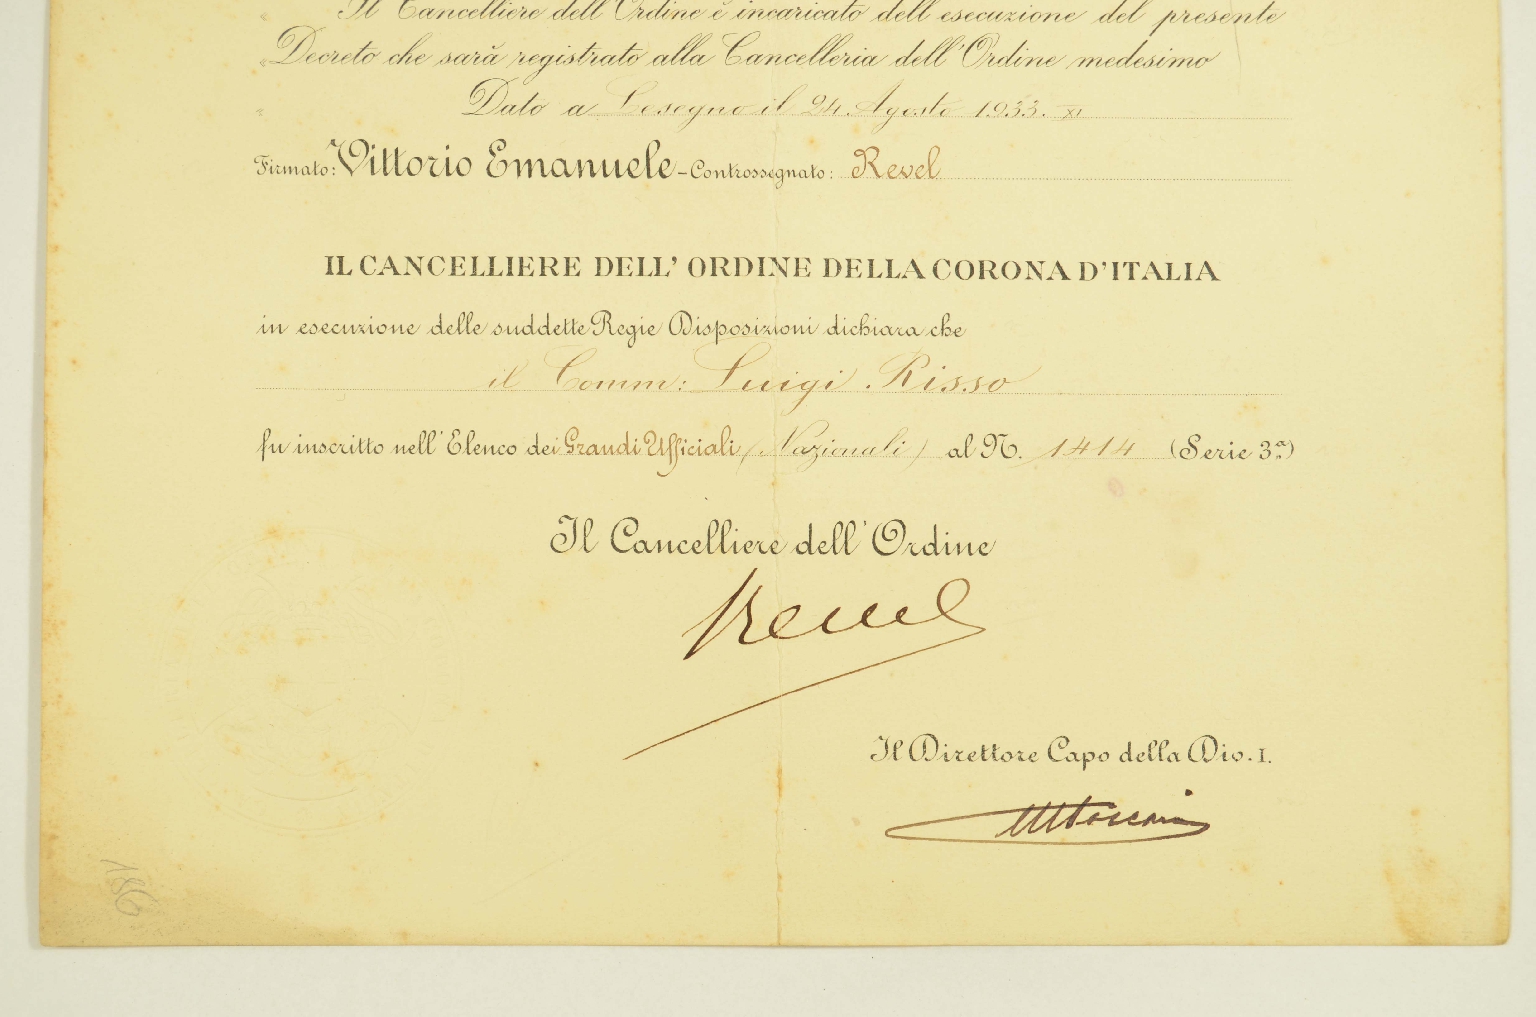 Il Cancelliere dell'Ordine è incaricato dell'esecuzione del presente
Decreto che sarà registrato alla Cancelleria dell'Ordine medesimo
Dato a Lesegno il 24 Agosto 1933. XI
Firmato: Vittorio Emanuele - Controssegnato: Revel
IL CANCELLIERE DELL' ORDINE DELLA CORONA D'ITALIA
in esecuzione delle suddette Regie Disposizioni dichiara che
il Comm: Luigi Risso
fu inscritto nell'Elenco dei Grandi Ufficiali (Nazionali) al N. 1414 (Serie 3ª)
Il Cancelliere dell'Ordine
Revel
Il Direttore Capo della Div. I.
186